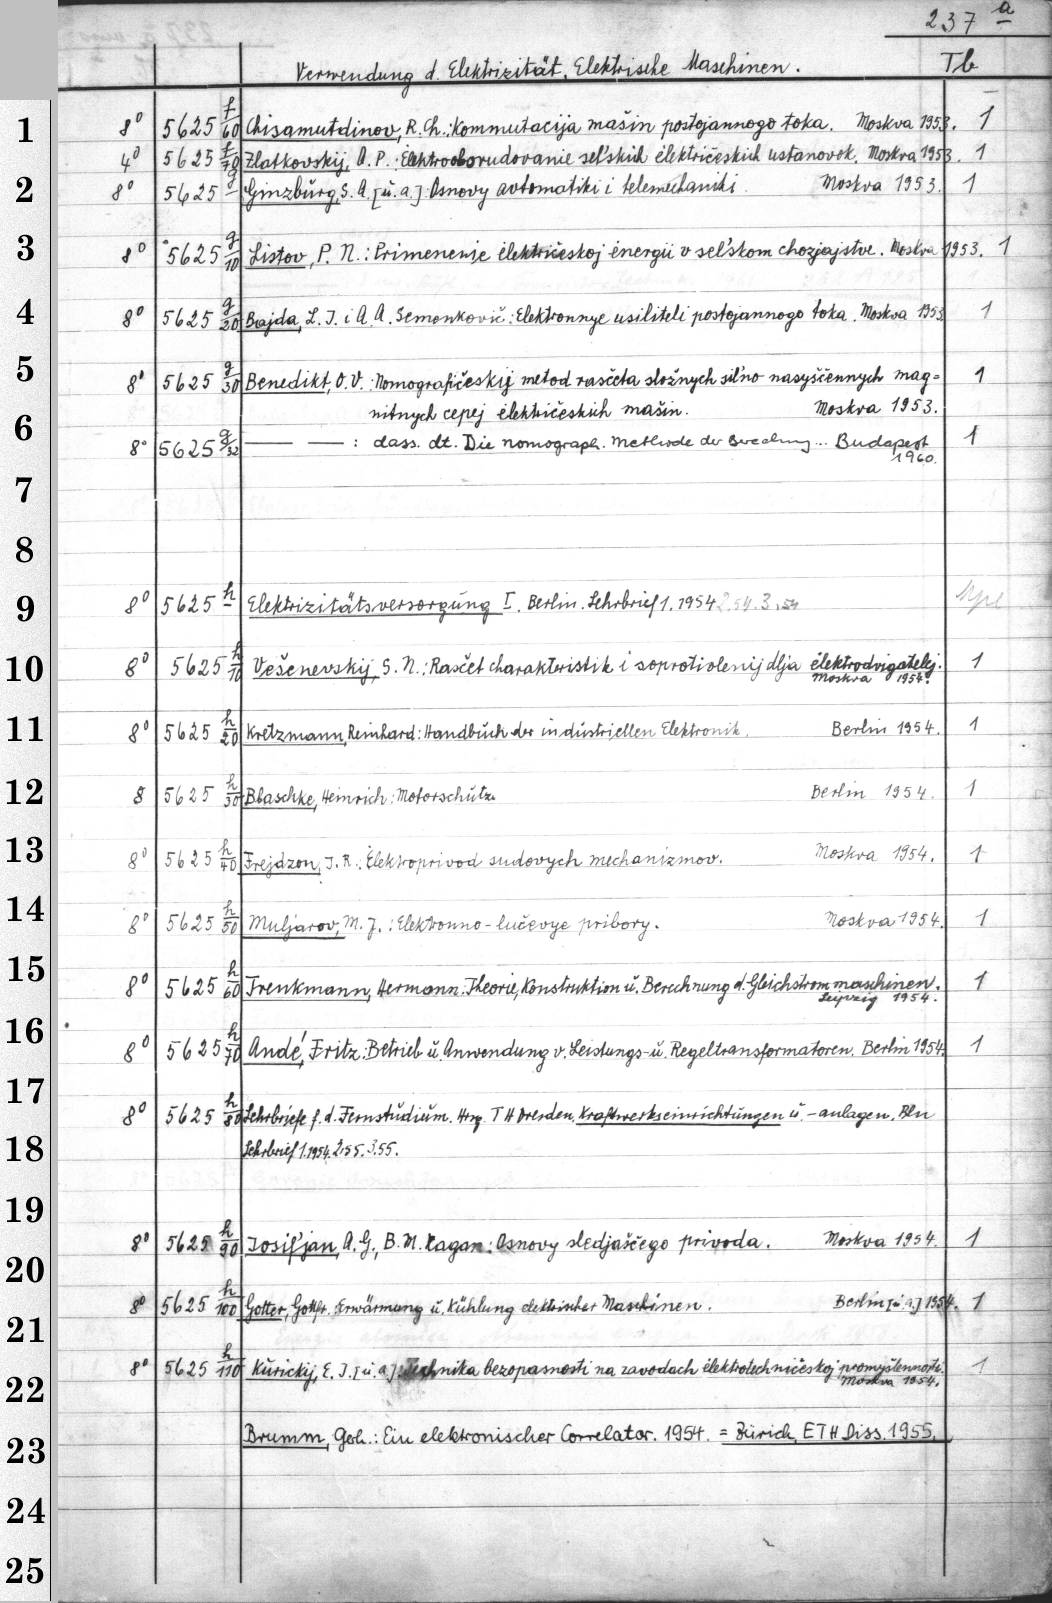 237 a
Verwendung d. Elektrizität. Elektrische Maschinen. Tb
1 8° 5625 f/60 Chisamutdinov, R. Ch.: Kommutacija mašin postojannogo toka. Moskva 1953. 1
4° 5625 f/70 Zlatkovskij, A. P.: Ėlektrooborudovanie sel'skich ėlektričeskich ustanovok. Moskva 1953. 1
2 8° 5625 g/- Ginzburg, S. A. [u. a.]: Osnovy avtomatiki i telemechaniki. Moskva 1953. 1
3 8° 5625 g/10 Listov, P. N.: Primenenie ėlektričeskoj ėnergii v sel'skom chozjajstve. Moskva 1953. 1
4 8° 5625 g/20 Bajda, L. I. i A. A. Semenkovič: Elektronnye usiliteli postojannogo toka. Moskva 1953 1
5 8° 5625 g/30 Benedikt, O. V.: Nomografičeskij metod rasčeta složnych sil'no nasyščennych mag=
nitnych cepej ėlektričeskich mašin. Moskva 1953. 1
6 8° 5625 g/32 — — : dass. dt. Die nomograph. Methode der Berechnung... Budapest 1
1960.
7
8
9 8° 5625 h/- Elektrizitätsversorgung I. Berlin. Lehrbrief 1. 1954 2.54. 3.54
10 8° 5625 h/10 Vešenevskij, S. N.: Rasčet charakteristik i soprotivlenij dlja ėlektrodvigatelej. 1
Moskva 1954.
11 8° 5625 h/20 Kretzmann, Reinhard: Handbuch der industriellen Elektronik. Berlin 1954. 1
12 8 5625 h/30 Blaschke, Heinrich: Motorschutz. Berlin 1954. 1
13 8° 5625 h/40 Frejdzon, I. R.: Ėlektroprivod sudovych mechanizmov. Moskva 1954. 1
14 8° 5625 h/50 Muljarov, M. J.: Elektronno-lučevye pribory. Moskva 1954. 1
15 8° 5625 h/60 Frenkmann, Hermann: Theorie, Konstruktion u. Berechnung d. Gleichstrommaschinen. 1
Leipzig 1954.
16 8° 5625 h/70 André, Fritz: Betrieb u. Anwendung v. Leistungs- u. Regeltransformatoren. Berlin 1954. 1
17 8° 5625 h/80 Lehrbriefe f. d. Fernstudium. Hrsg. TH Dresden. Kraftwerkseinrichtungen u. -anlagen. Bln
18 Lehrbrief 1. 1954. 2.55. 3.55.
19
8° 5625 h/90 Iosif'jan, A. G., B. M. Kagan: Osnovy sledjaščego privoda. Moskva 1954. 1
20
8° 5625 h/100 Gotter, Gottfr.: Erwärmung u. Kühlung elektrischer Maschinen. Berlin [u. a.] 1954. 1
21
8° 5625 h/110 Kurickij, E. I. [u. a.]: Technika bezopasnosti na zavodach ėlektrotechničeskoj promyšlennosti. 1
22 Moskva 1954.
23 Brumm, Gerh.: Ein elektronischer Correlator. 1954. = Zürich, ETH Diss. 1955.
24
25